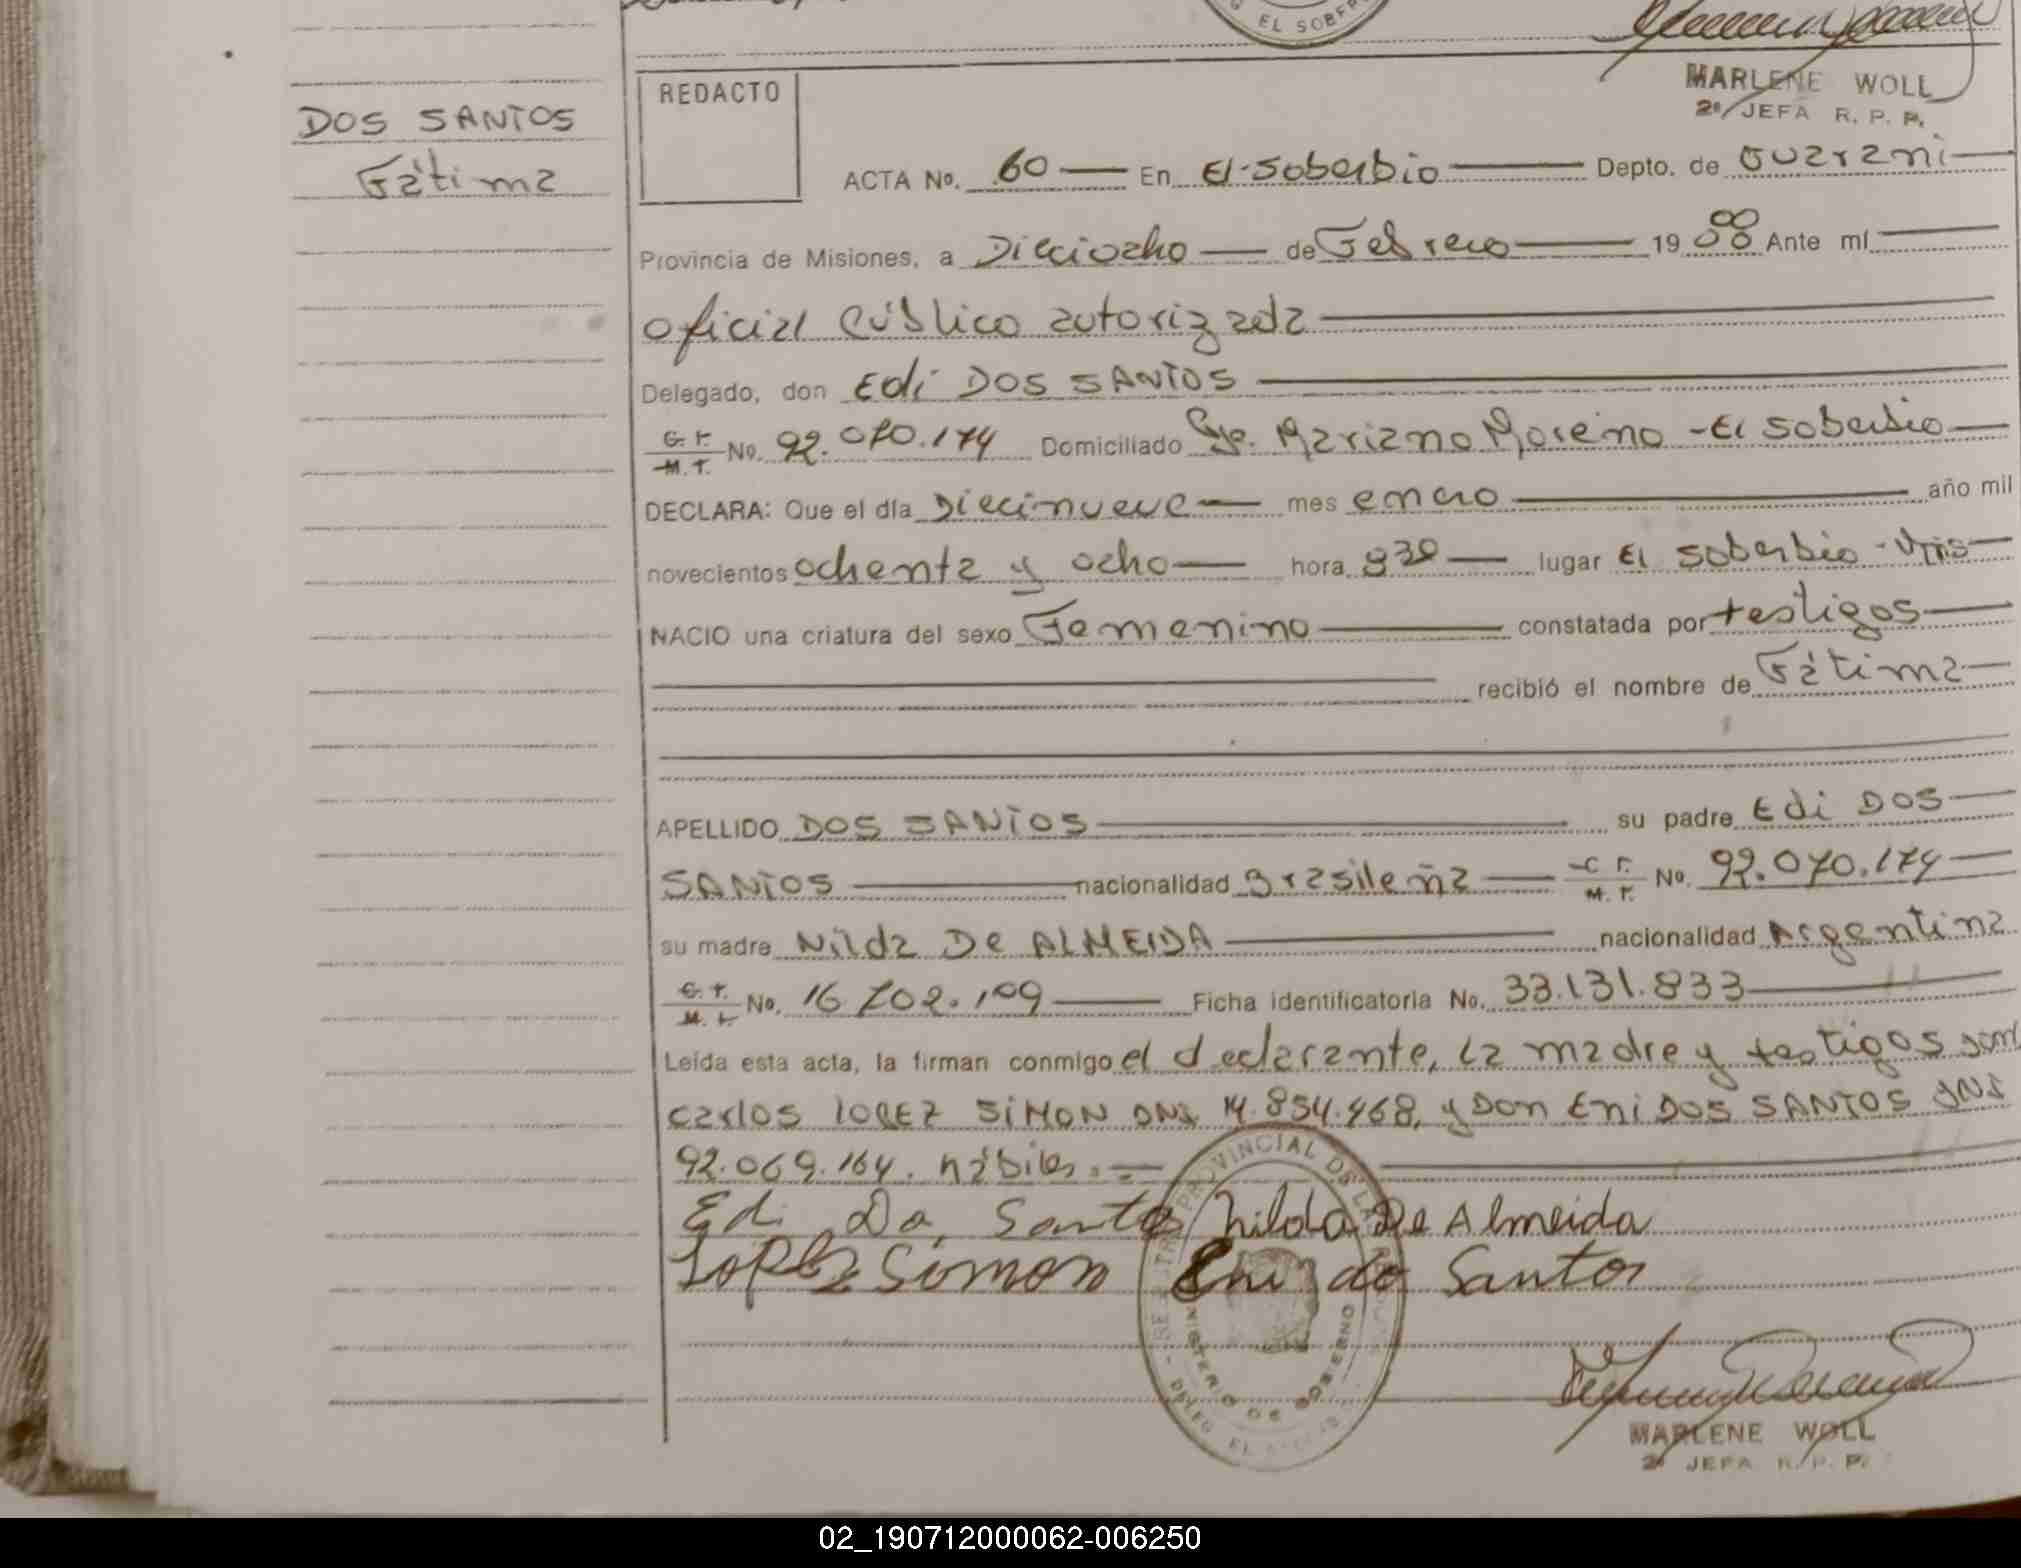 EL SOBER
MARLENE WOLL
2ª JEFA R. P. P.
DOS SANTOS
Fátima
REDACTO
ACTA No. 60 En El Soberbio Depto. de Guaraní
Provincia de Misiones, a Dieciocho de Febrero 1988 Ante mí
oficial Público autorizada
Delegado, don Edi DOS SANTOS
C. I. M. I. No. 92.070.174 Domiciliado Pje. Mariano Moreno - El Soberbio
DECLARA: Que el día Diecinueve mes enero año mil
novecientos ochenta y ocho hora 930 lugar El Soberbio - Mis
NACIO una criatura del sexo Femenino constatada por testigos
recibió el nombre de Fátima
APELLIDO DOS SANTOS su padre Edi DOS
SANTOS nacionalidad Brasileña C. I. M. I. No. 92.070.174
su madre Nilda De ALMEIDA nacionalidad Argentina
C. I. M. I. No. 16.702.109 Ficha identificatoria No. 33.131.833
Leída esta acta, la firman conmigo el declarante, la madre y testigos son
Carlos LOPEZ SIMON DNI 14.854.468, y DON ENI DOS SANTOS DNI
92.069.164. hábiles.
Edi Do, Santos Nilda De Almeida
LOPEZ Simon Eni do Santos
PROVINCIAL DE LAS
MINISTERIO DE GOBIERNO
DELEG EL
MARLENE WOLL
2ª JEFA R. P. P.
02_190712000062-006250